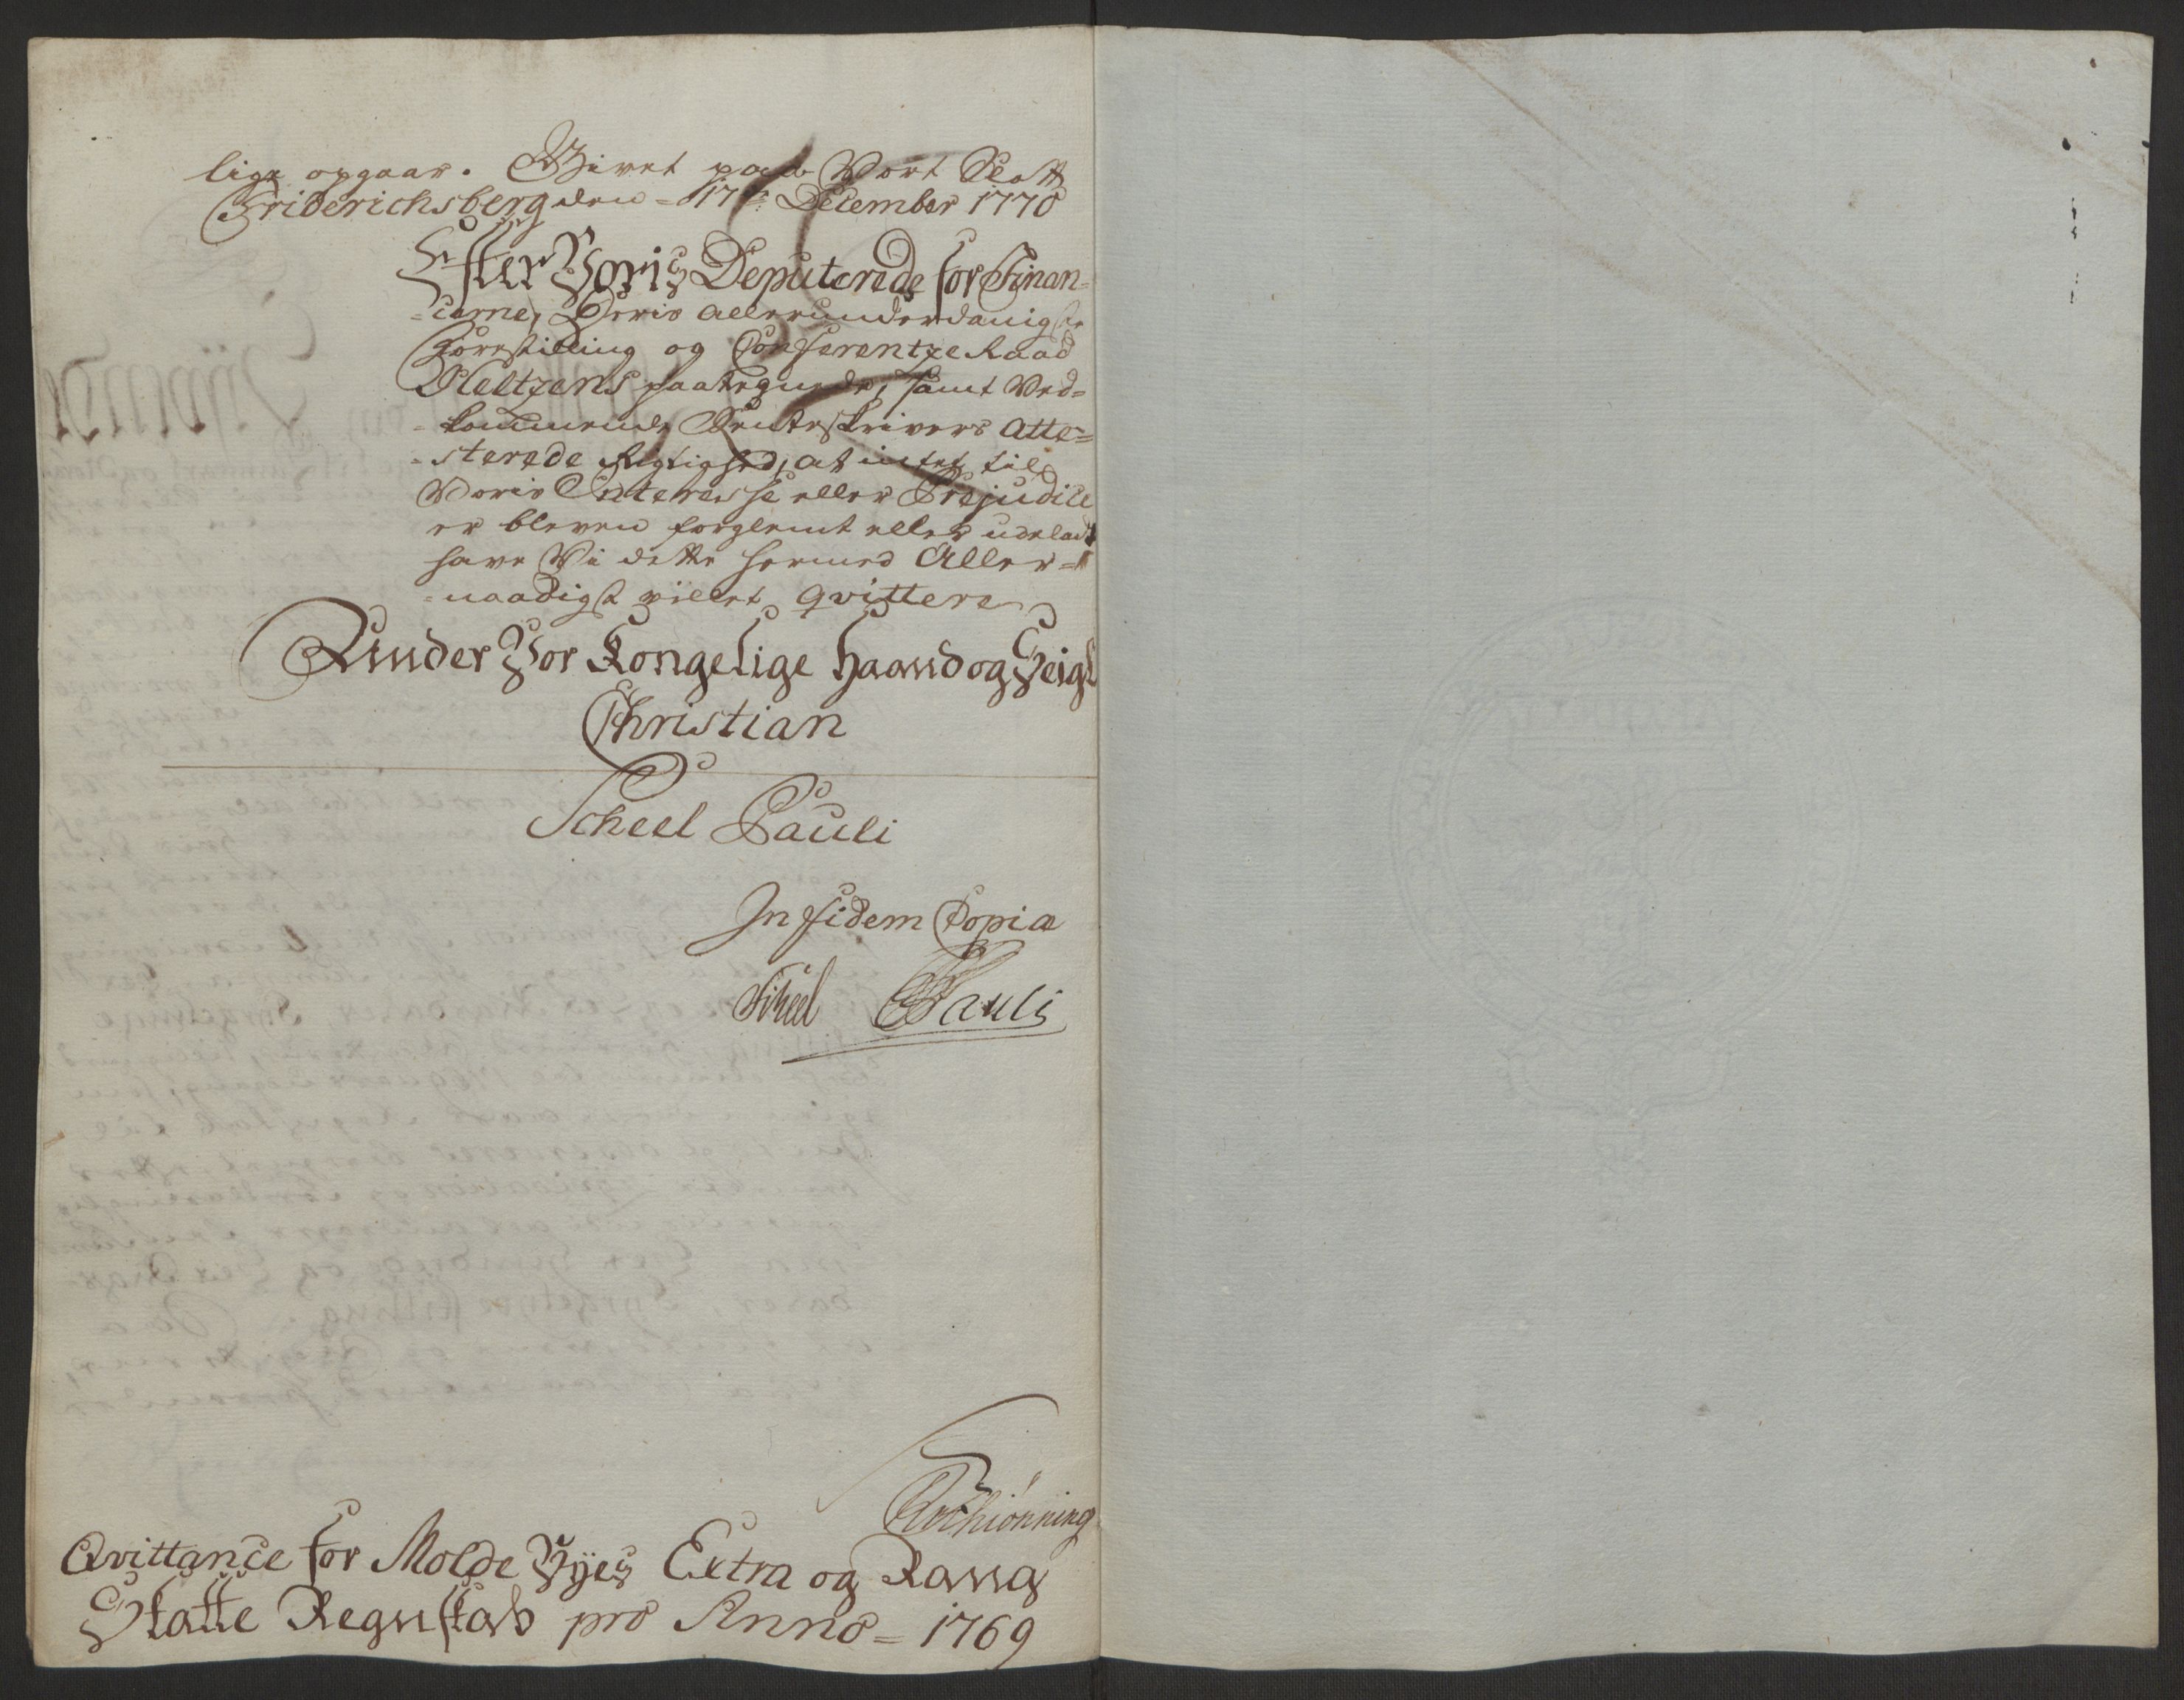 lige opgaar. Givet paa Vort Slott
Friderichsberg den 17de December 1770
Efter Voris Deputerede for Finan-
-cerne, Deris allerunderdanigste
Forestilling og Conferentze Raad
Heltzens paategnede, samt Ved-
-kommende Renteskrivers atte-
-sterede Rigtighed, at intet til
Voris Interesse eller Præjudice
er bleven forglemt eller udeladt
have Vi dette hermed Aller-
-naadigst villet qvittere
Under Vor Kongelige Haand og Zeigl
Christian
Scheel Pauli
In fidem Copiæ
Scheel Pauli
Qvittance for Molde Byes Extra og Rang
Skatte Regnskab pro Anno = 1769